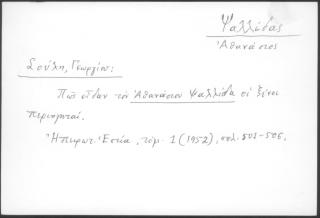 Ψαλλίδας
Ἀθανάσιος
Σούλη, Γεωργίου:
Πῶς εἶδαν τὸν Ἀθανάσιον Ψαλλίδα οἱ ξένοι
περιηγηταί.
Ἠπειρωτ. Ἑστία, τόμ. 1 (1952), σελ. 503-506.